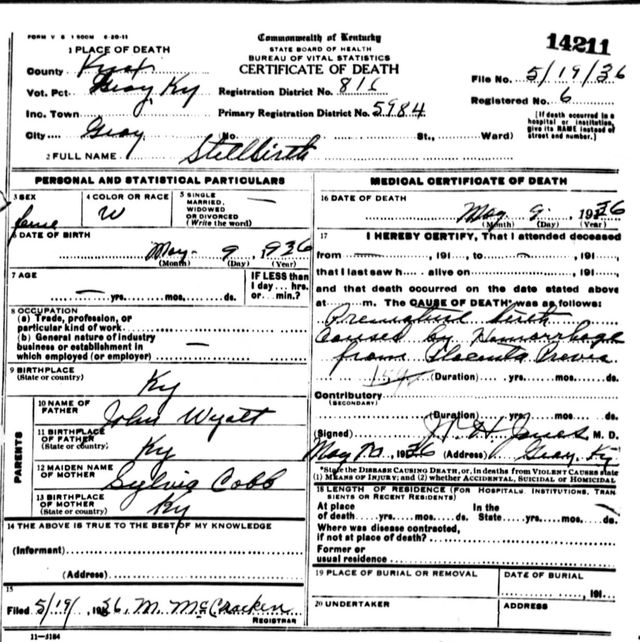 FORM V S 1 500M 6-20-11
Commonwealth of Kentucky
STATE BOARD OF HEALTH
BUREAU OF VITAL STATISTICS
CERTIFICATE OF DEATH
14211
1 PLACE OF DEATH
County Knox
Vot. Pct. Gray, Ky
Registration District No. 816
File No. 5/19/36
Inc. Town
Primary Registration District No. 5984
Registered No. 6
City Gray No. St., Ward)
[If death occurred in a
hospital or institution,
give its NAME instead of
street and number.]
2 FULL NAME Stillbirth
PERSONAL AND STATISTICAL PARTICULARS
3 SEX
4 COLOR OR RACE
W
5 SINGLE
MARRIED,
WIDOWED
OR DIVORCED
(Write the word)
6 DATE OF BIRTH
May 9 1936
(Month) (Day) (Year)
7 AGE
yrs. mos. ds.
IF LESS than
1 day... hrs.
or... min.?
8 OCCUPATION
(a) Trade, profession, or
particular kind of work
(b) General nature of industry
business or establishment in
which employed (or employer)
9 BIRTHPLACE
(State or country)
Ky
PARENTS
10 NAME OF
FATHER
John Wyatt
11 BIRTHPLACE
OF FATHER
(State or country)
Ky
12 MAIDEN NAME
OF MOTHER
Sylvia Cobb
13 BIRTHPLACE
OF MOTHER
Ky
14 THE ABOVE IS TRUE TO THE BEST OF MY KNOWLEDGE
(Informant)
(Address)
15
Filed 5/19/ 1936 M. McCracken
REGISTRAR
11-5184
MEDICAL CERTIFICATE OF DEATH
16 DATE OF DEATH
May 9, 1936
(Month) (Day) (Year)
17 I HEREBY CERTIFY, That I attended deceased
from 191 to 191
that I last saw h alive on 191
and that death occurred on the date stated above
at m. The CAUSE OF DEATH* was as follows:
Premature birth
Causes by Hemorrhage
from Placenta Previa
(Duration) yrs. mos. ds.
Contributory
(SECONDARY)
(Duration) yrs. mos. ds.
(Signed) W H Jones M. D.
May 1936 (Address) Gray, Ky
*State the DISEASE CAUSING DEATH, or, in deaths from VIOLENT CAUSES state
(1) MEANS OF INJURY; and (2) whether ACCIDENTAL, SUICIDAL or HOMICIDAL
18 LENGTH OF RESIDENCE (FOR HOSPITALS, INSTITUTIONS, TRAN
SIENTS OR RECENT RESIDENTS)
At place In the
of death yrs. mos. ds. State yrs. mos. ds.
Where was disease contracted,
if not at place of death?
Former or
usual residence
19 PLACE OF BURIAL OR REMOVAL
DATE OF BURIAL
191
20 UNDERTAKER
ADDRESS